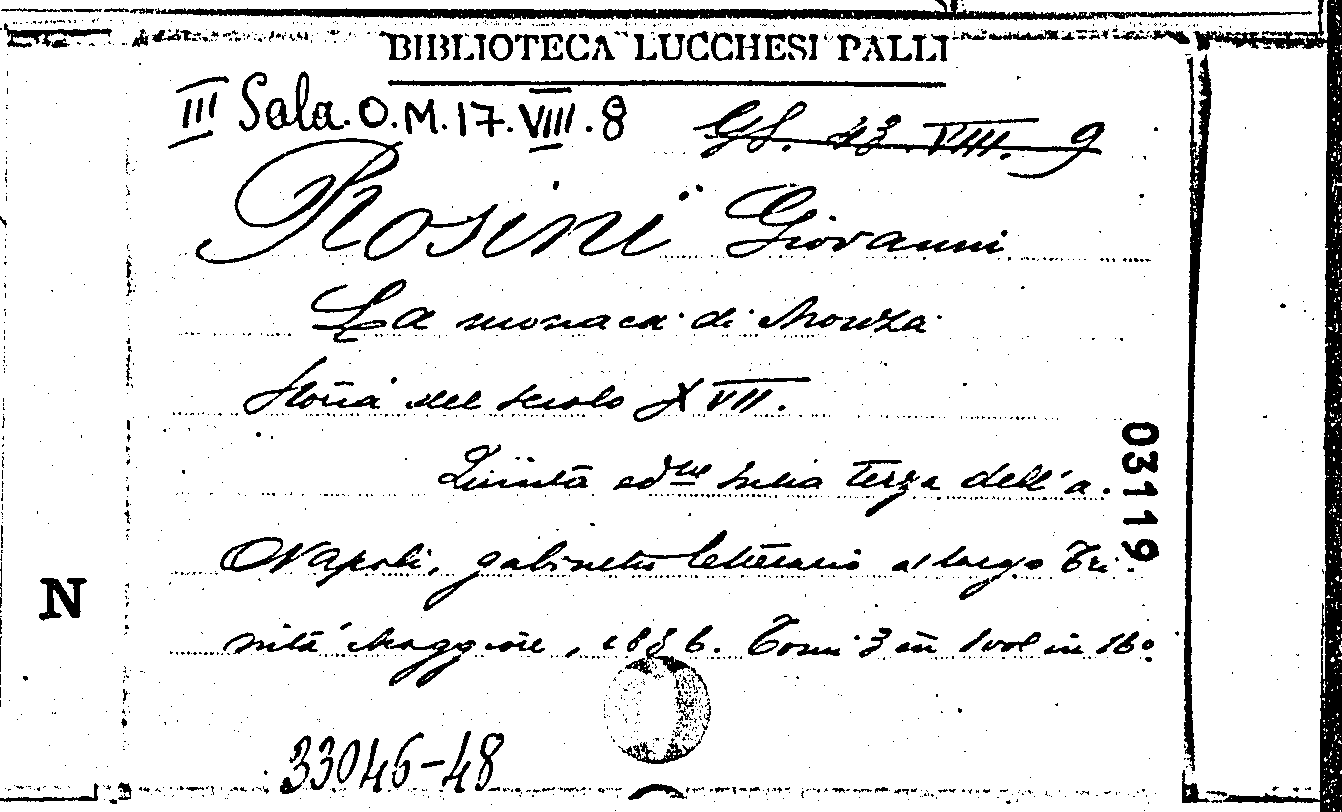 BIBLIOTECA LUCCHESI PALLI
III Sala. O. M. 17. VIII. 8 VIII. 9
Rosini Giovanni
La monaca di Monza
Storia del secolo XVII.
Quinta ed.ne terza dell'a.
Napoli, gabinetto letterario al largo Tri
nità Maggiore, 1836. Tomi 3 in 1 vol in 16º
33046-48
N
03119